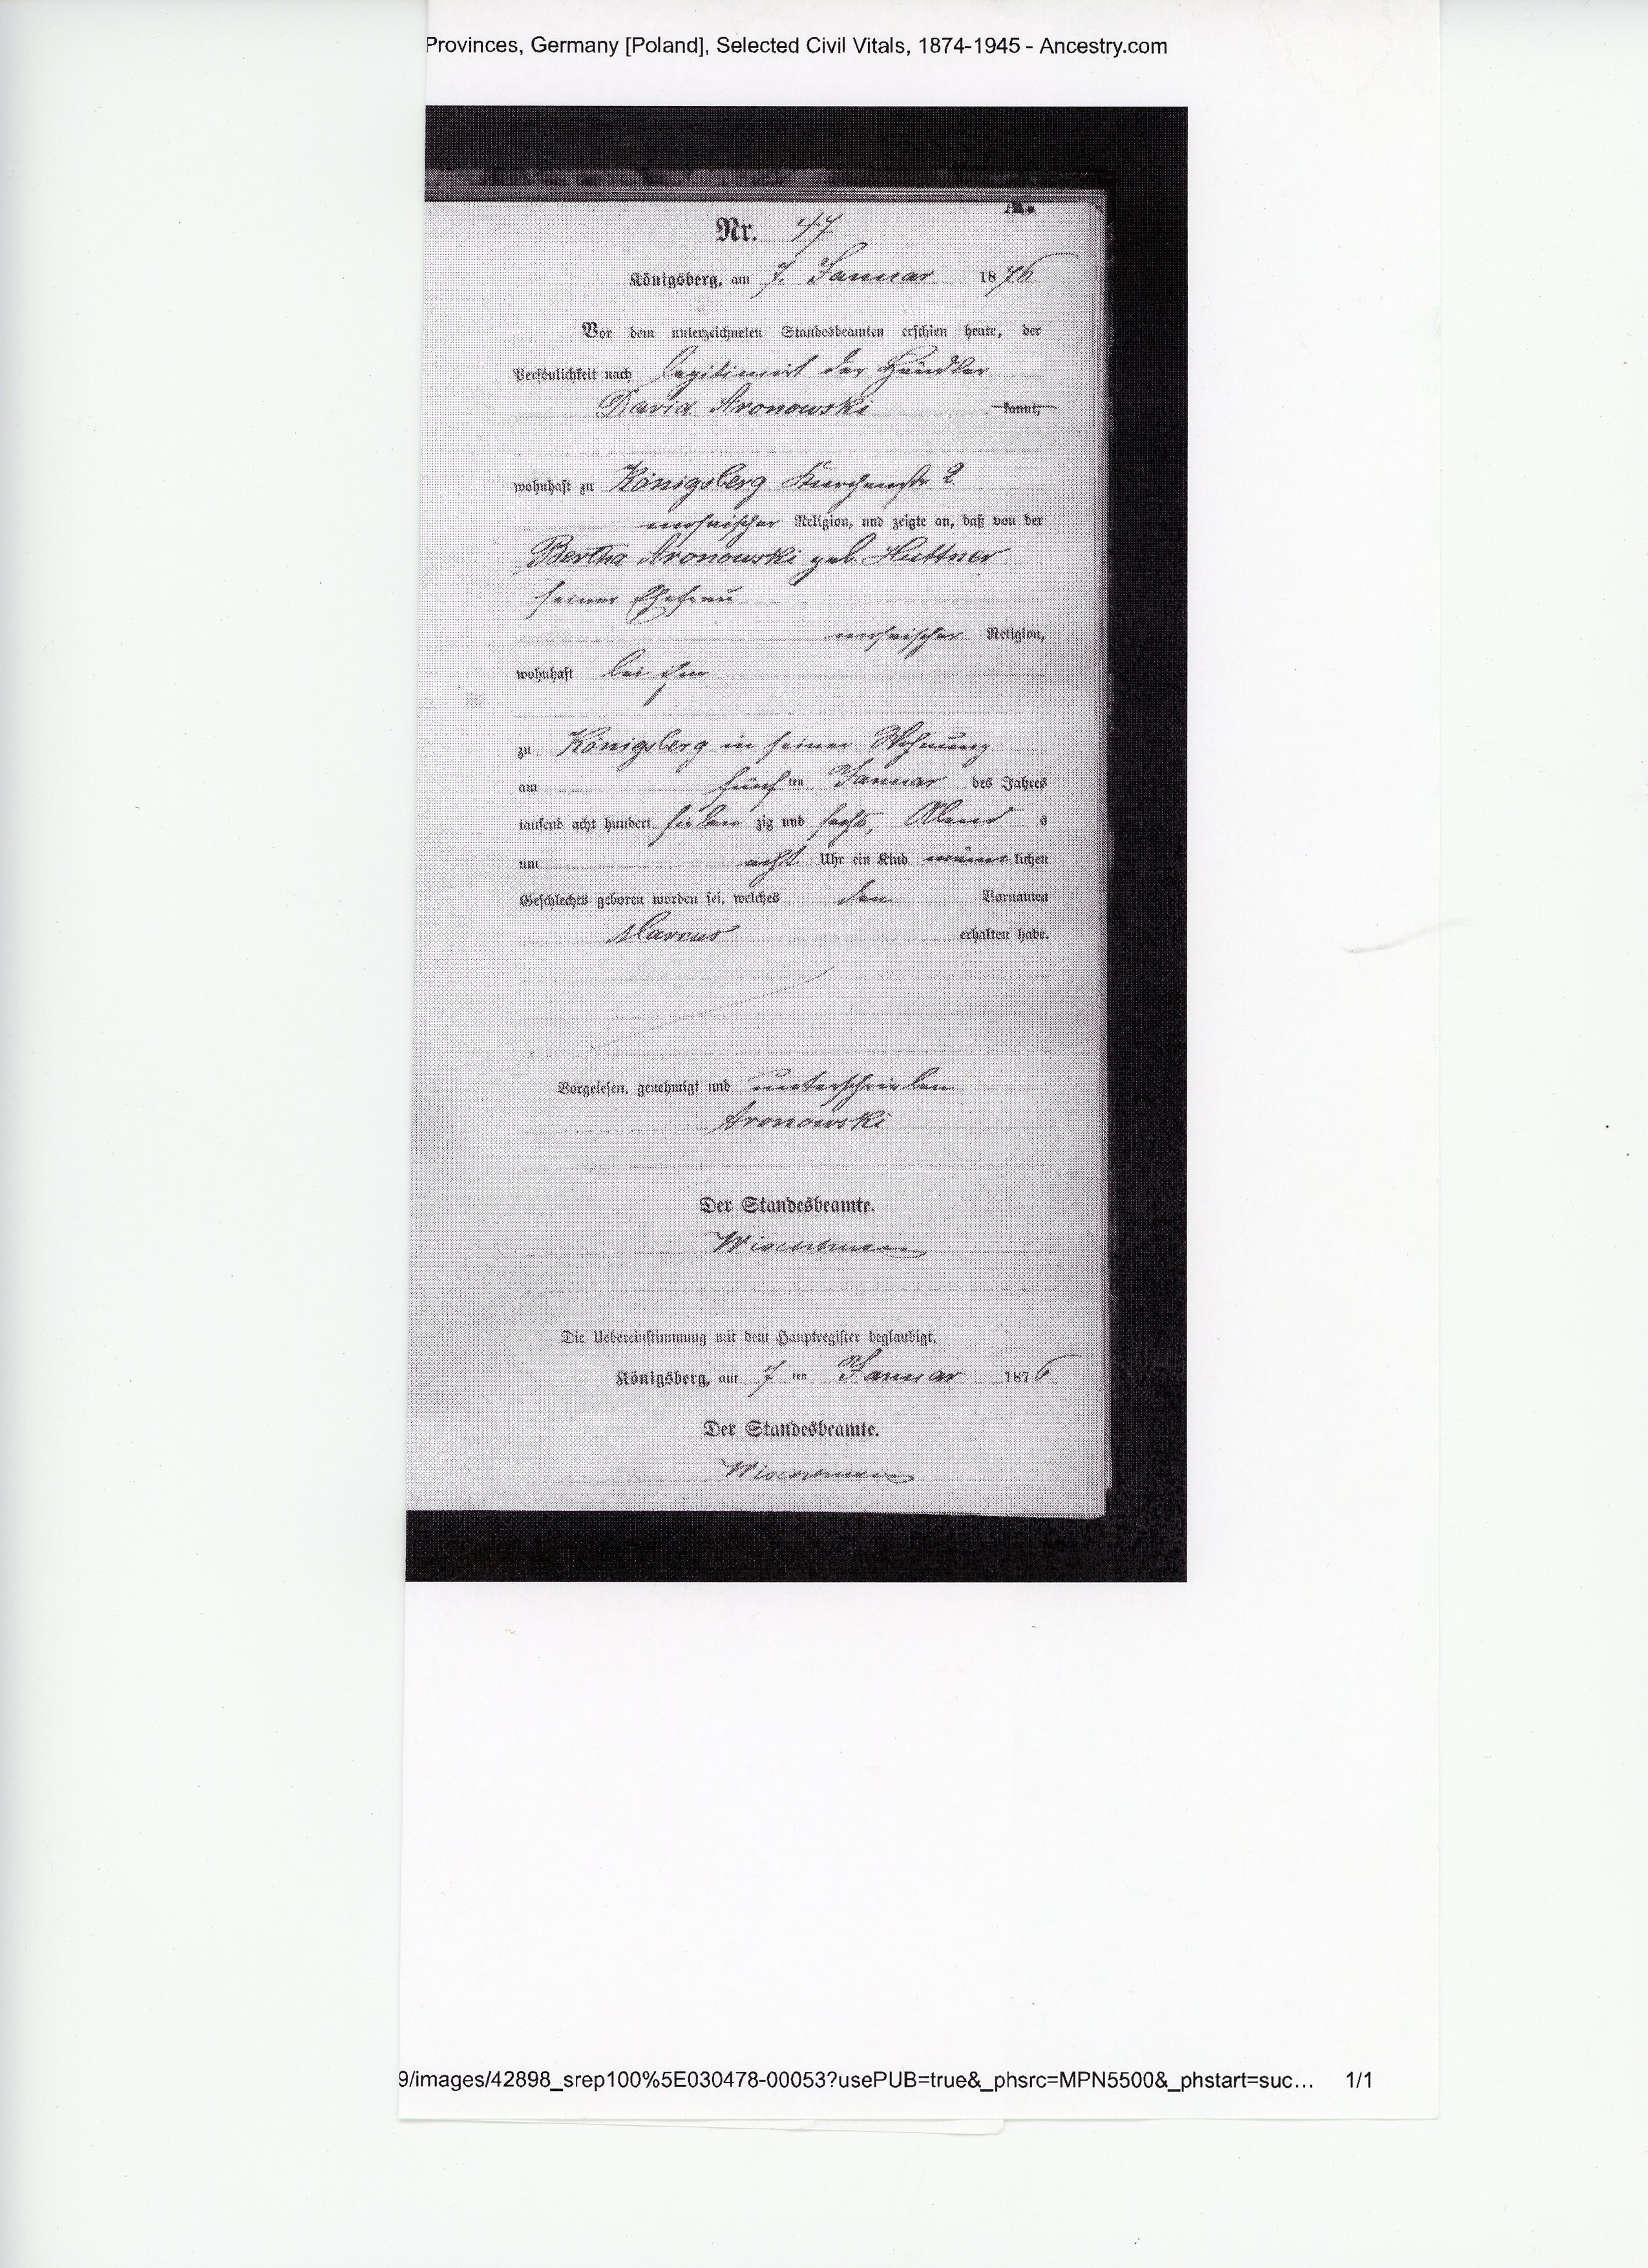 Provinces, Germany [Poland], Selected Civil Vitals, 1874-1945 - Ancestry.com
Nr. 47
Königsberg, am 7. Januar 1876
Vor dem unterzeichneten Standesbeamten erschien heute, der
Persönlichkeit nach legitimirt der Händler
David Aronowski kannt,
wohnhaft zu Königsberg 2
mosaischer Religion, und zeigte an, daß von der
Bertha Aronowski geb. Huttner
seiner Ehefrau
mosaischer Religion,
wohnhaft bei ihm
zu Königsberg in seiner Wohnung
am fünf ten Januar des Jahres
tausend acht hundert sieben zig und sechs, Abend s
um acht Uhr ein Kind männ lichen
Geschlechts geboren worden sei, welches den Vornamen
Marcus erhalten habe.
Vorgelesen, genehmigt und unterschrieben
Aronowski
Der Standesbeamte.
Die Uebereinstimmung mit dem Hauptregister beglaubigt.
Königsberg, am 7 ten Januar 1876
Der Standesbeamte.
9/images/42898_srep100%5E030478-00053?usePUB=true&_phsrc=MPN5500&_phstart=suc... 1/1